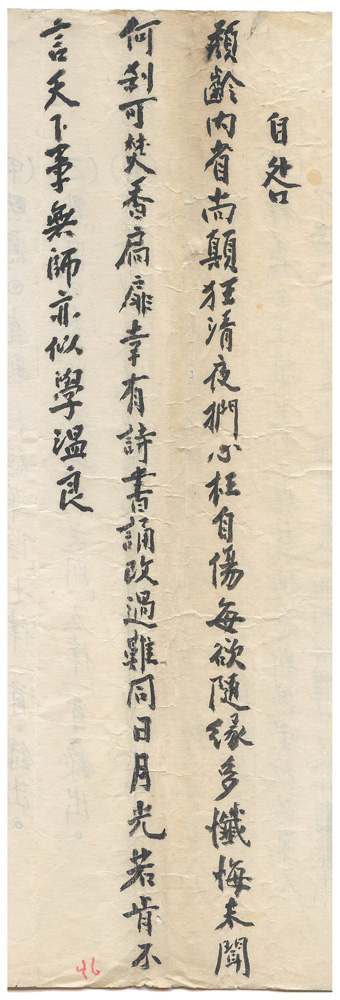 自咎
頹齡内省尚顛狂清夜捫心枉自傷每欲隨緣多懺悔未聞
何刹可焚香扃扉幸有詩書誦改過難同日月光若肯不
言天下事無師亦似學温良
46